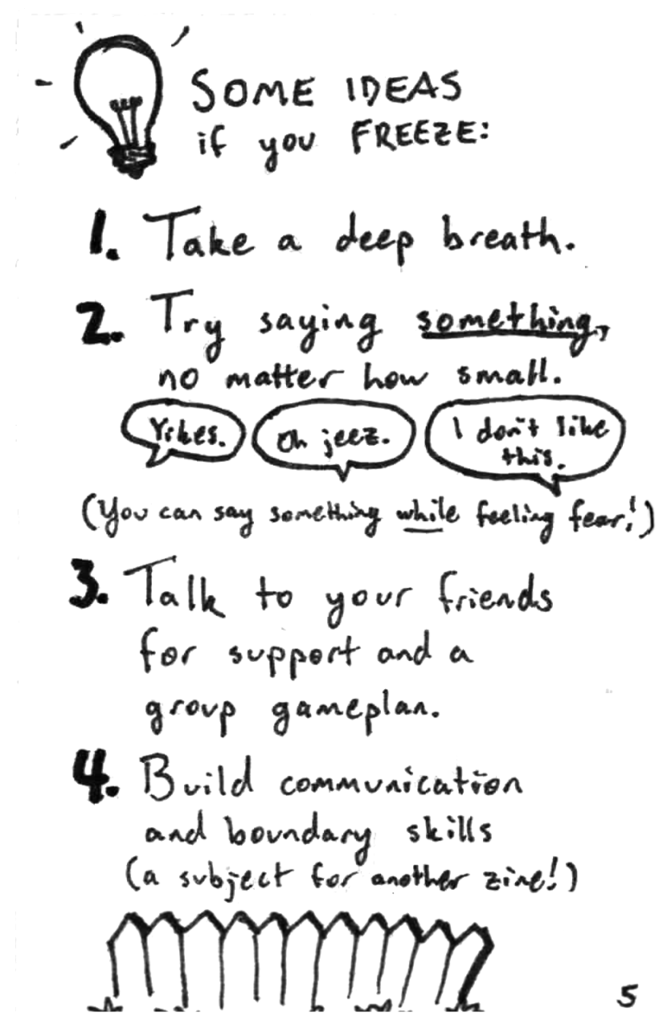 SOME IDEAS
if you FREEZE:
1. Take a deep breath.
2. Try saying something,
no matter how small.
Yikes.
Oh jeez.
I don't like
this.
(You can say something while feeling fear!)
3. Talk to your friends
for support and a
group gameplan.
4. Build communication
and boundary skills
(a subject for another zine!)
5